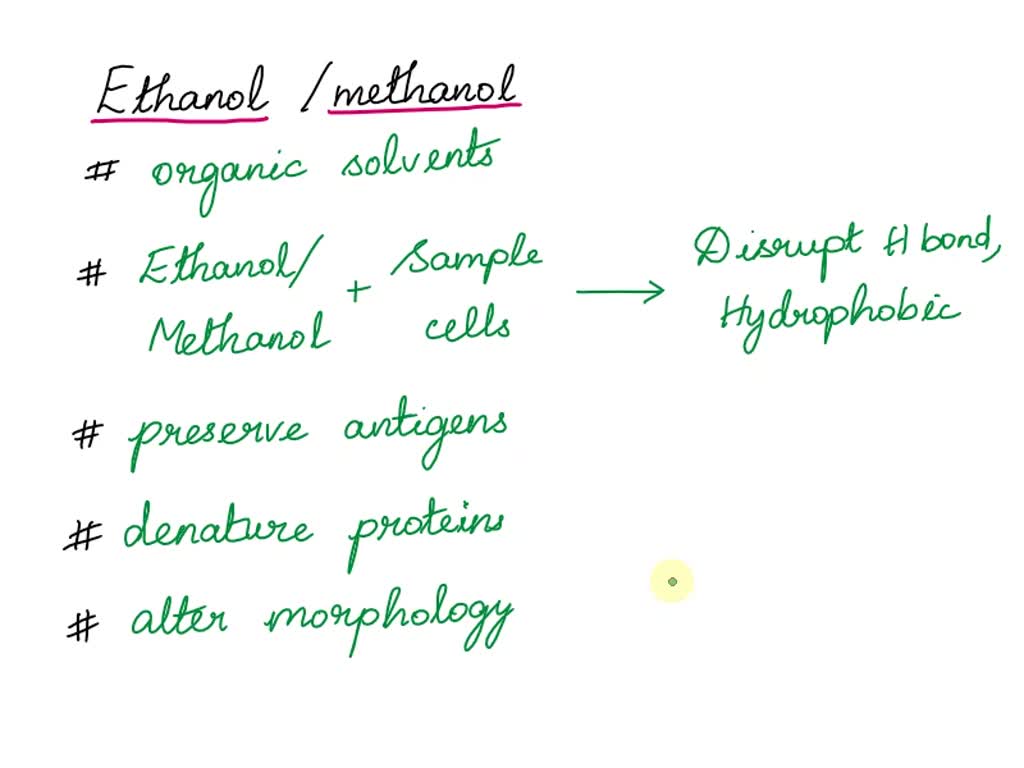 Ethanol / methanol
# organic solvents
# Ethanol/ Methanol + Sample cells → Disrupt H bond, Hydrophobic
# preserve antigens
# denature proteins
# alter morphology